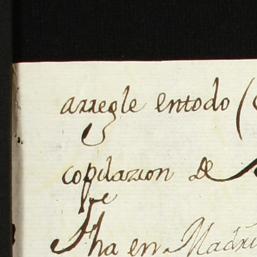 arregle entodo (
copilazion de
fha en Madri